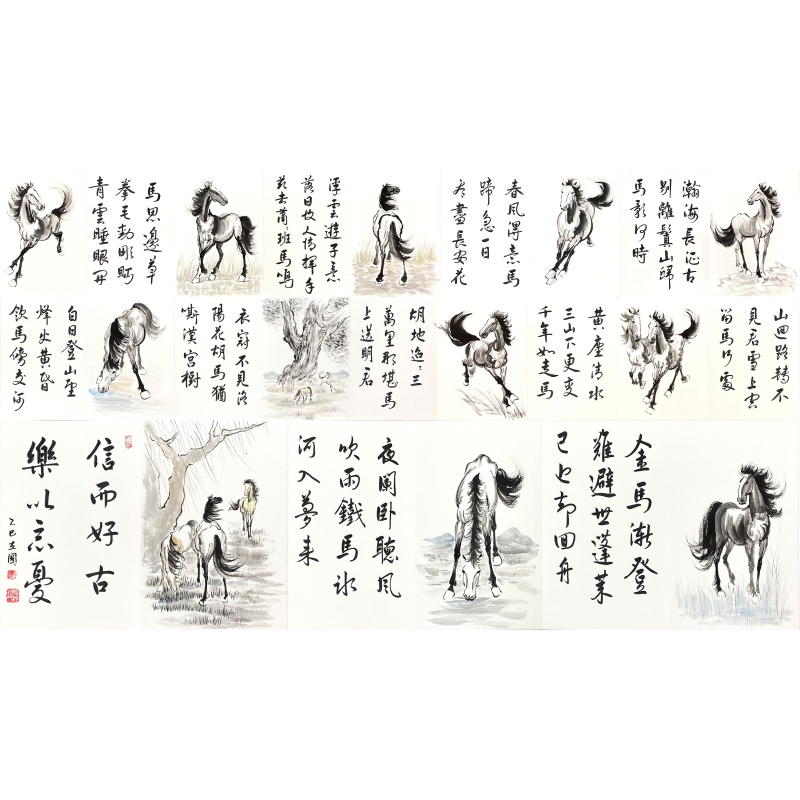 瀚海長征古
別離華山歸
馬是何時
春風得意馬
蹄急一日
看盡長安花
浮雲遊子意
落日故人情揮手
茲去蕭〻班馬鳴
馬思邊草
拳毛動雕眄
青雲睡眼開
山迴路轉不
見君雪上空
留馬行處
黃塵清水
三山下更變
千年如走馬
胡地迢〻三
萬里那堪馬
上送明君
衣冠不見洛
陽花胡馬猶
嘶漢宮樹
白日登山望
烽火黃昏
飲馬傍交河
金馬漸登
雖避世蓬萊
已近却回舟
夜闌臥聽風
吹雨鐵馬冰
河入夢來
信而好古
樂以忘憂
乙巳